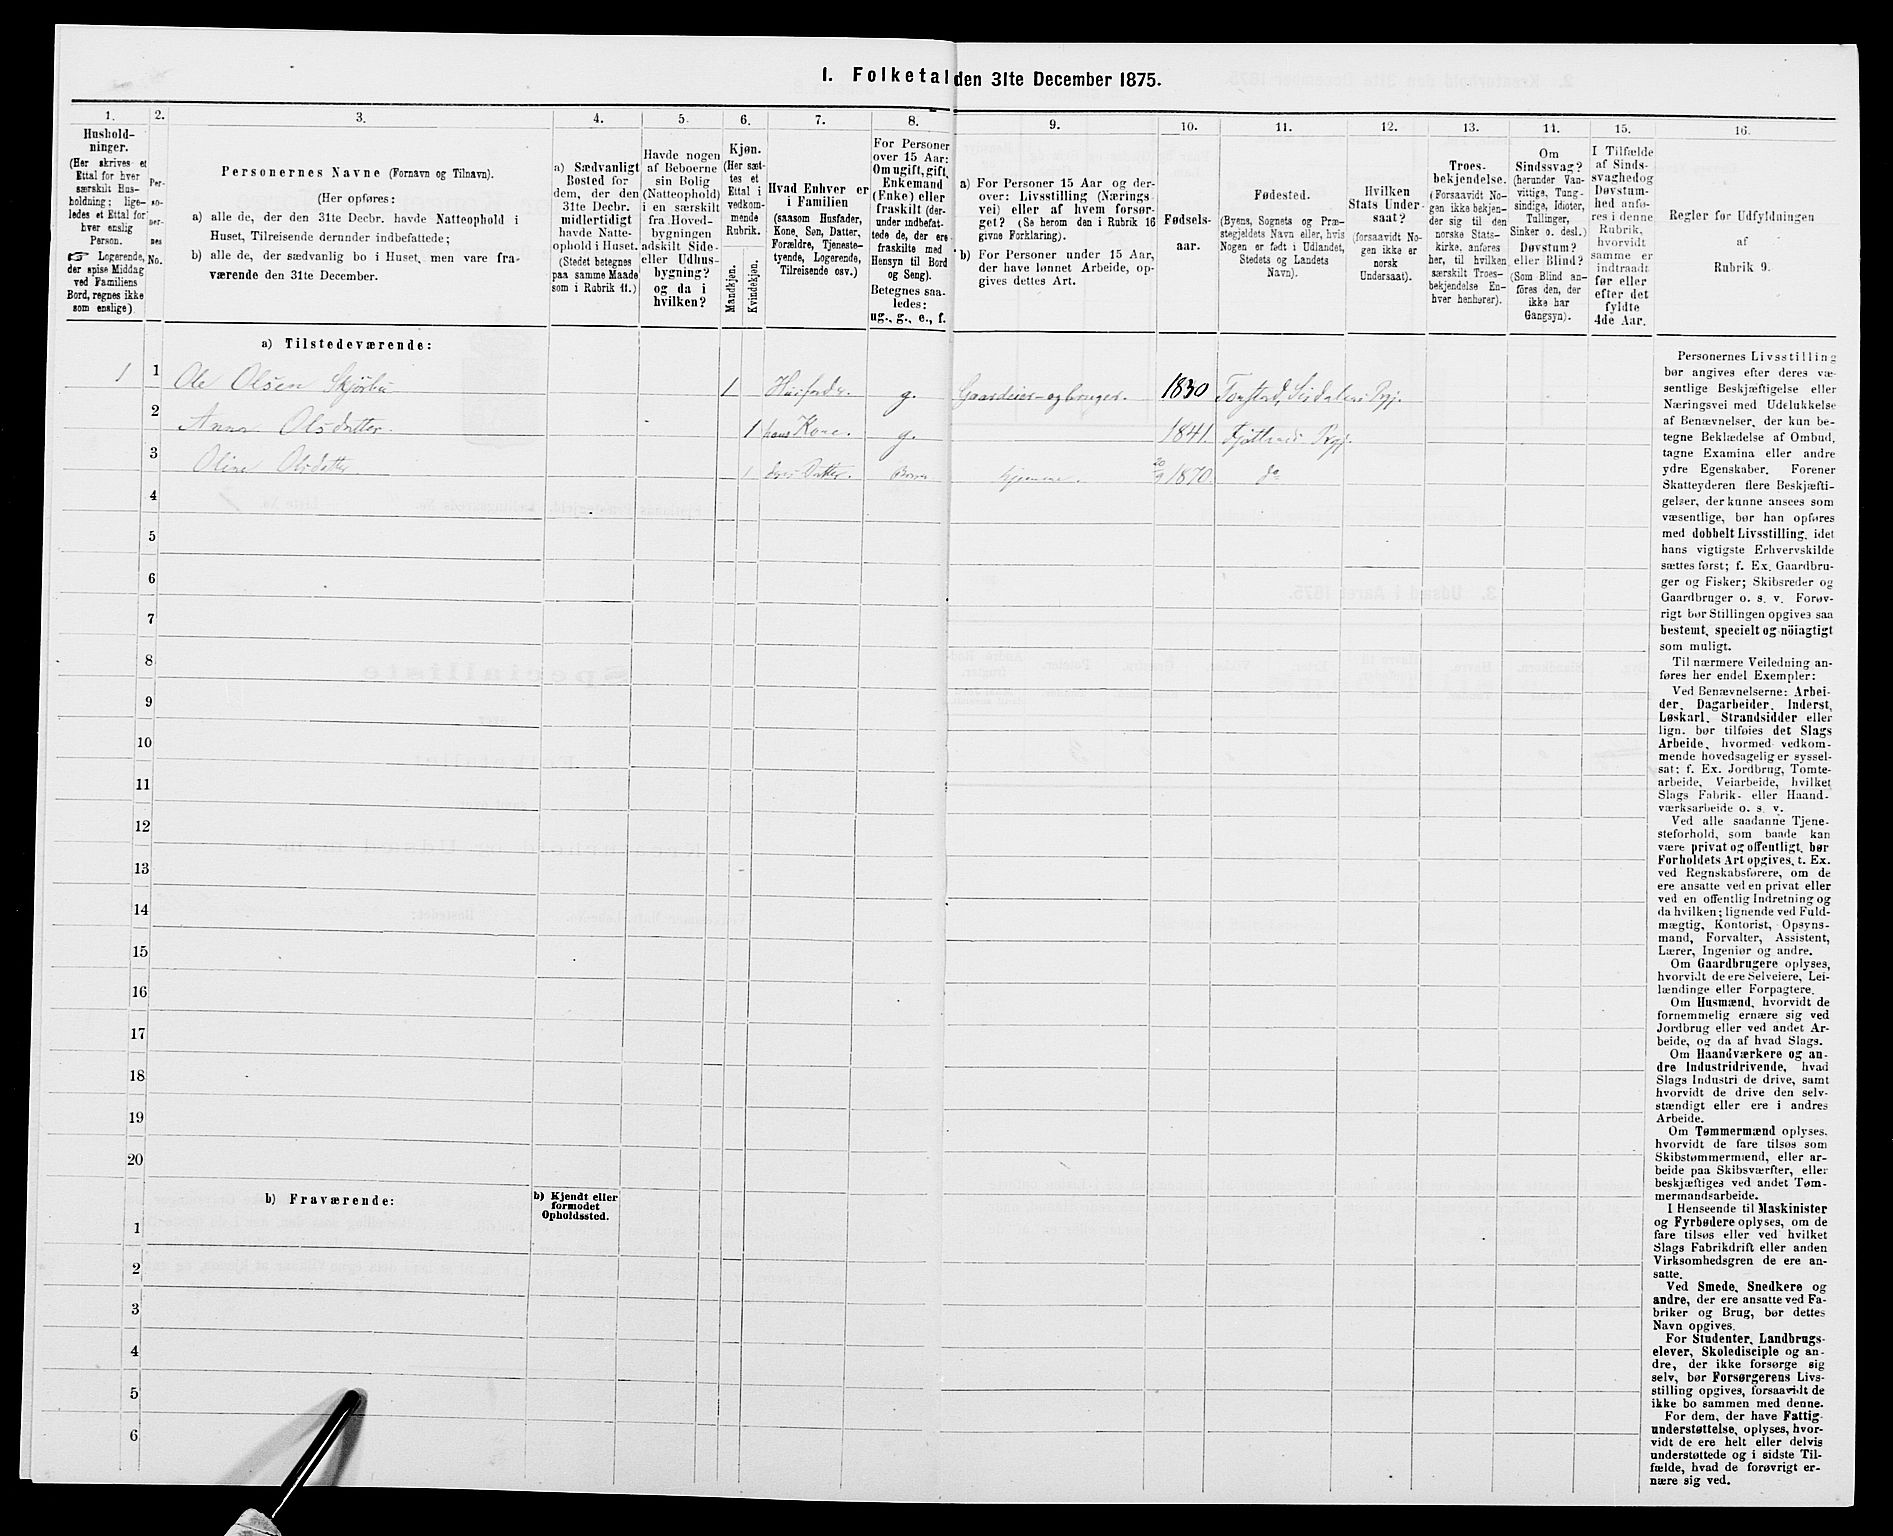 1. Folketal den 31te December 1875.
1.
Hushold-
ninger.
(Her skrives et
Ettal for hver
særskilt Hus-
holdning; lige-
ledes et Ettal for
hver enslig
Person.
☞ Logerende,
der spise Middag
ved Familiens
Bord, regnes ikke
som enslige).
2.
Per-
so-
ner-
nes
No.
3.
Personernes Navne (Fornavn og Tilnavn).
(Her opføres:
a) alle de, der den 31te Decbr. havde Natteophold i
Huset, Tilreisende derunder indbefattede;
b) alle de, der sædvanlig bo i Huset, men vare fra-
værende den 31te December.
4.
a) Sædvanligt
Bosted for
dem, der den
31te Decbr.
midlertidigt
havde Natte-
ophold i Huset.
(Stedet betegnes
paa samme Maade
som i Rubrik 11.)
5.
Havde nogen
af Beboerne
sin Bolig
(Natteophold)
i en særskilt
fra Hoved-
bygningen
adskilt Side-
eller Udhus-
bygning?
og da i
hvilken?
6.
Kjøn.
(Her sæt-
tes et
Ettal i
vedkom-
mende
Rubrik.
Mandkjøn.
Kvindekjøn.
7.
Hvad Enhver er
i Familien
(saasom Husfader,
Kone, Søn, Datter,
Forældre, Tjeneste-
tyende, Logerende,
Tilreisende osv.)
8.
For Personer
over 15 Aar:
Om ugift, gift,
Enkemand
(Enke) eller
fraskilt (der-
under indbefat-
tede de, der ere
fraskilte med
Hensyn til Bord
og Seng).
Betegnes saa-
ledes:
ug., g., e., f.
9.
a) For Personer 15 Aar og der-
over: Livsstilling (Nærings-
vei) eller af hvem forsør-
get? (Se herom den i Rubrik 16
givne Forklaring).
b) For Personer under 15 Aar,
der have lønnet Arbeide, op-
gives dettes Art.
10.
Fødsels-
aar.
11.
Fødested.
(Byens, Sognets og Præ-
stegjeldets Navn eller, hvis
Nogen er født i Udlandet,
Stedets og Landets
Navn).
12.
Hvilken
Stats Under-
saat?
(forsaavidt No-
gen ikke er
norsk
Undersaat).
13.
Troes-
bekjendelse.
(Forsaavidt No-
gen ikke bekjen-
der sig til den
norske Stats-
kirke, anføres
her, til hvilken
særskilt Troes-
bekjendelse En-
hver henhører).
14.
Om
Sindssvag?
(herunder Van-
vittige, Tung-
sindige, Idioter,
Tullinger,
Sinker o. desl.)
Døvstum?
eller Blind?
(Som Blind an-
føres den, der
ikke har
Gangsyn).
15.
I Tilfælde
af Sinds-
svaghed og
Døvstum-
hed anfø-
res i denne
Rubrik,
hvorvidt
samme er
indtraadt
før eller
efter det
fyldte
4de Aar.
16.
Regler for Udfyldningen
af
Rubrik 9.
a) Tilstedeværende:
1 1 Ole Olsen Skjørbu 1 Husfader g. Gaardeier og bruger. 1830 Tonstad, Sirdalens Prgj.
2 Anna Olsdatter. 1 hans Kone. g. 1841. Fjotlands Prgj.
3 Oline Olsdatter 1 deres Datter. Barn hjemme. 20/9 1870. do
4
5
6
7
8
9
10
11
12
13
14
15
16
17
18
19
20
b) Fraværende:
b) Kjendt eller
formodet
Opholdssted.
1
2
3
4
5
6
Personernes Livsstilling
bør angives efter deres væ-
sentlige Beskjæftigelse eller
Næringsvei med Udelukkelse
af Benævnelser, der kun be-
tegne Beklædelse af Ombud,
tagne Examina eller andre
ydre Egenskaber. Forener
Skatteyderen flere Beskjæfti-
gelser, der kunne ansees som
væsentlige, bør han opføres
med dobbelt Livsstilling, idet
hans vigtigste Erhvervskilde
sættes først; f. Ex. Gaardbru-
ger og Fisker; Skibsreder og
Gaardbruger o. s. v. Forøv-
rigt bør Stillingen opgives saa
bestemt, specielt og nöiagtigt
som muligt.
Til nærmere Veiledning an-
føres her endel Exempler:
Ved Benævnelserne: Arbei-
der, Dagarbeider, Inderst,
Løskarl, Strandsidder eller
lign. bør tilføies det Slags
Arbeide, hvormed vedkom-
mende hovedsagelig er syssel-
sat; f. Ex. Jordbrug, Tomte-
arbeide, Veiarbeide, hvilket
Slags Fabrik- eller Haand-
værksarbeide o. s. v.
Ved alle saadanne Tjene-
steforhold, som baade kan
være privat og offentligt, bør
Forholdets Art opgives, t. Ex.
ved Regnskabsførere, om de
ere ansatte ved en privat eller
ved en offentlig Indretning og
da hvilken; lignende ved Fuld-
mægtig, Kontorist, Opsyns-
mand, Forvalter, Assistent,
Lærer, Ingeniør og andre.
Om Gaardbrugere oplyses,
hvorvidt de ere Selveiere, Lei-
lændinge eller Forpagtere.
Om Husmænd, hvorvidt de
fornemmelig ernære sig ved
Jordbrug eller ved andet Ar-
beide, og da af hvad Slags.
Om Haandværkere og an-
dre Industridrivende, hvad
Slags Industri de drive, samt
hvorvidt de drive den selv-
stændigt eller ere i andres
Arbeide.
Om Tømmermænd oplyses,
hvorvidt de fare tilsøs som
Skibstømmermænd, eller ar-
beide paa Skibsværfter, eller
beskjæftiges ved andet Tøm-
mermandsarbeide.
I Henseende til Maskinister
og Fyrbødere oplyses, om de
fare tilsøs eller ved hvilket
Slags Fabrikdrift eller anden
Virksomhedsgren de ere an-
satte.
Ved Smede, Snedkere og
andre, der ere ansatte ved Fa-
briker og Brug, bør dettes
Navn opgives.
For Studenter, Landbrugs-
elever, Skoledisciple og an-
dre, der ikke forsørge sig
selv, bør Forsørgerens Livs-
stilling opgives, forsaavidt de
ikke bo sammen med denne.
For dem, der have Fattig-
understøttelse, oplyses, hvor-
vidt de ere helt eller delvis
understøttede og i sidste Til-
fælde, hvad de forøvrigt er-
nære sig ved.